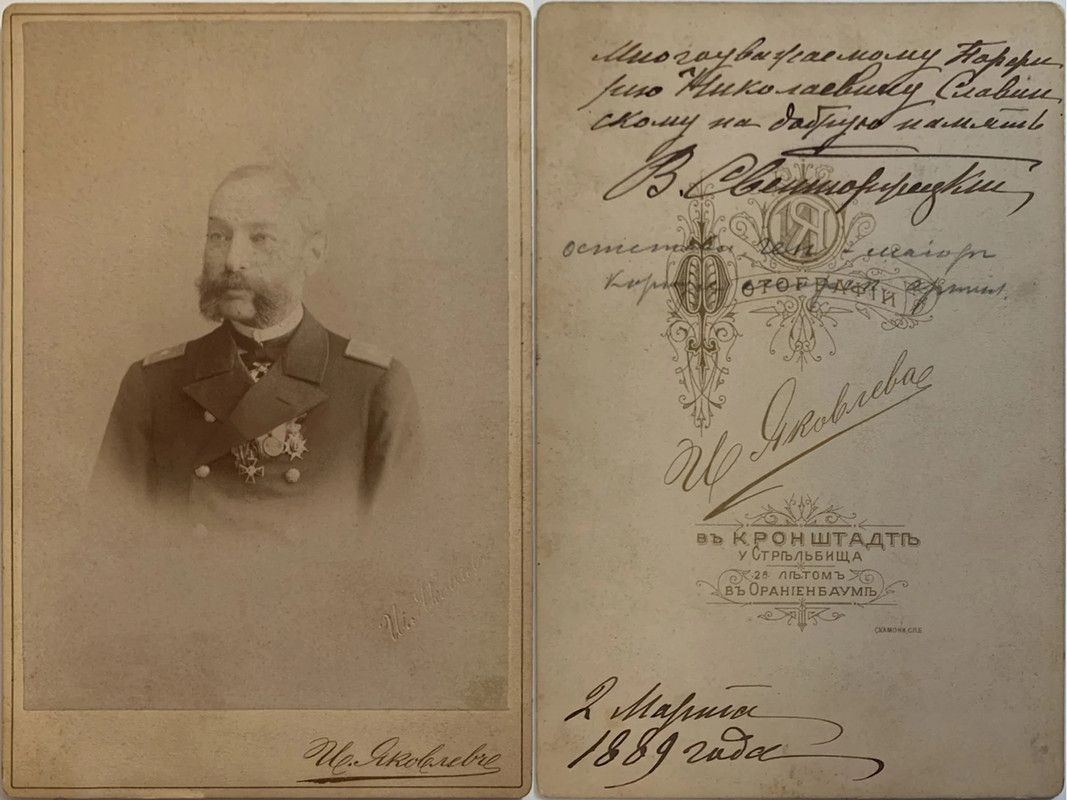 И. Яковлевъ
И. Яковлевъ
Многоуважаемому Порфи
рію Николаевичу Славин
скому на добрую память
В. Свенторжецкій
отставн. ген-маіоръ
Корпуса артил.
ИЯ
Фотографіи
И Яковлева
въ КРОНШТАДТѢ
у СТРѢЛЬБИЩА
ЛѢТОМЪ
въ ОРАНІЕНБАУМѢ
СКАМОНИ, СПБ
2 Марта
1889 года